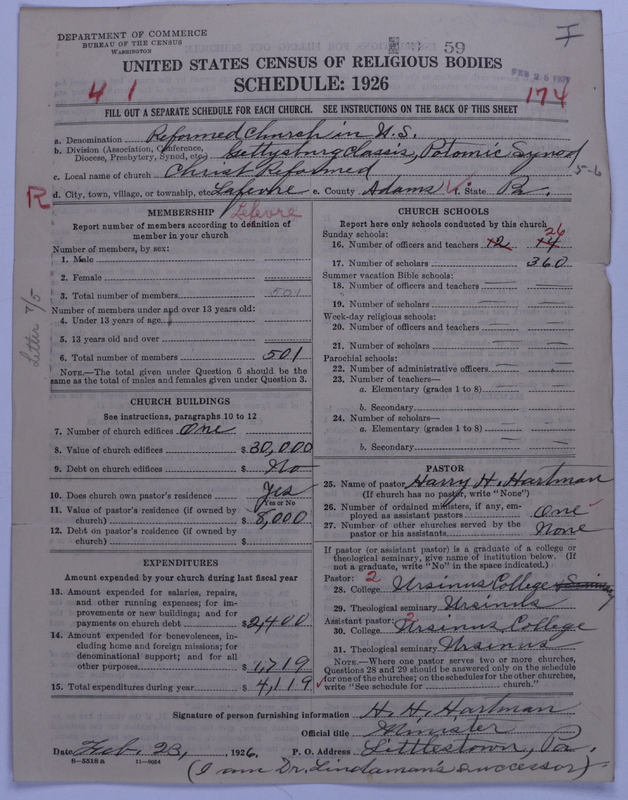 DEPARTMENT OF COMMERCE
BUREAU OF THE CENSUS
WASHINGTON
59
I
UNITED STATES CENSUS OF RELIGIOUS BODIES
SCHEDULE: 1926
FEB 25
41
174
FILL OUT A SEPARATE SCHEDULE FOR EACH CHURCH. SEE INSTRUCTIONS ON THE BACK OF THIS SHEET
a. Denomination Reformed Church in U.S.
b. Division (Association, Conference, Diocese, Presbytery, Synod, etc.) Gettysburg Classis, Potomic Synod
5-6
c. Local name of church Christ Reformed
R
d. City, town, village, or township, etc. Lafevre e. County Adams f. State Pa.
Lefevre
MEMBERSHIP
Report number of members according to definition of
member in your church
Number of members, by sex:
1. Male
2. Female
3. Total number of members 501
Number of members under and over 13 years old:
4. Under 13 years of age
5. 13 years old and over
6. Total number of members 501
NOTE.—The total given under Question 6 should be the
same as the total of males and females given under Question 3.
Letter 7/5
CHURCH BUILDINGS
See instructions, paragraphs 10 to 12
7. Number of church edifices One
8. Value of church edifices $30,000
9. Debt on church edifices $ No
10. Does church own pastor's residence Yes
Yes or No
11. Value of pastor's residence (if owned by
church) $8,000
12. Debt on pastor's residence (if owned by
church) $
EXPENDITURES
Amount expended by your church during last fiscal year
13. Amount expended for salaries, repairs,
and other running expenses; for im-
provements or new buildings; and for
payments on church debt $2400
14. Amount expended for benevolences, in-
cluding home and foreign missions; for
denominational support; and for all
other purposes $1,719
15. Total expenditures during year $4,119
CHURCH SCHOOLS
Report here only schools conducted by this church
Sunday schools:
26
16. Number of officers and teachers 12 14
17. Number of scholars 360
Summer vacation Bible schools:
18. Number of officers and teachers
19. Number of scholars
Week-day religious schools:
20. Number of officers and teachers
21. Number of scholars
Parochial schools:
22. Number of administrative officers
23. Number of teachers—
a. Elementary (grades 1 to 8)
b. Secondary
24. Number of scholars—
a. Elementary (grades 1 to 8)
b. Secondary
PASTOR
25. Name of pastor Harry H. Hartman
(If church has no pastor, write "None")
26. Number of ordained ministers, if any, em-
ployed as assistant pastors One
27. Number of other churches served by the
pastor or his assistants None
If pastor (or assistant pastor) is a graduate of a college or
theological seminary, give name of institution below. (If
not a graduate, write "No" in the space indicated.)
Pastor: 2
28. College Ursinus College
29. Theological seminary Ursinus
Assistant pastor: 2
30. College Ursinus College
31. Theological seminary Ursinus
NOTE.—Where one pastor serves two or more churches,
Questions 28 and 29 should be answered only on the schedule
for one of the churches; on the schedules for the other churches,
write "See schedule for church."
Signature of person furnishing information H. H. Hartman
Official title Minister
Date Feb. 23, 1926. P. O. Address Littlestown, Pa.
8—5518 a 11—9054
(I am Dr. Lindaman's successor)